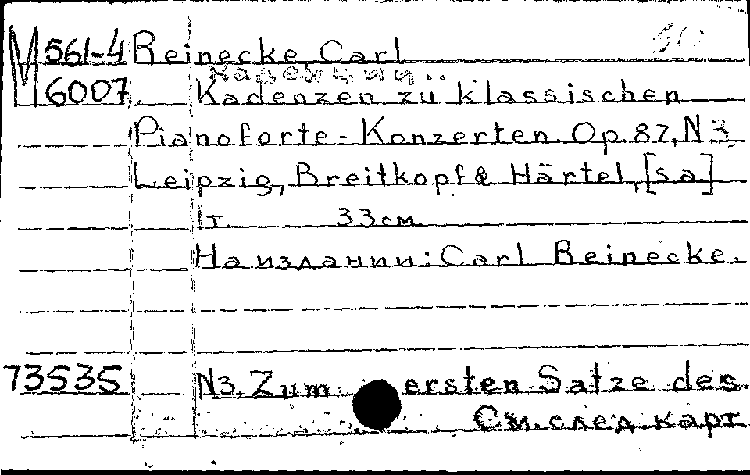 М 561-4 Reinecke, Carl 90
6007 Каденции..
Kadenzen zu klassischen
Pianoforte-Konzerten Op. 87, N 3
Leipzig, Breitkopf & Härtel, [s a]
1 т. 33 см
На издании: Carl Reinecke.
73535 N3. Zum ersten Satze des
См. след карт